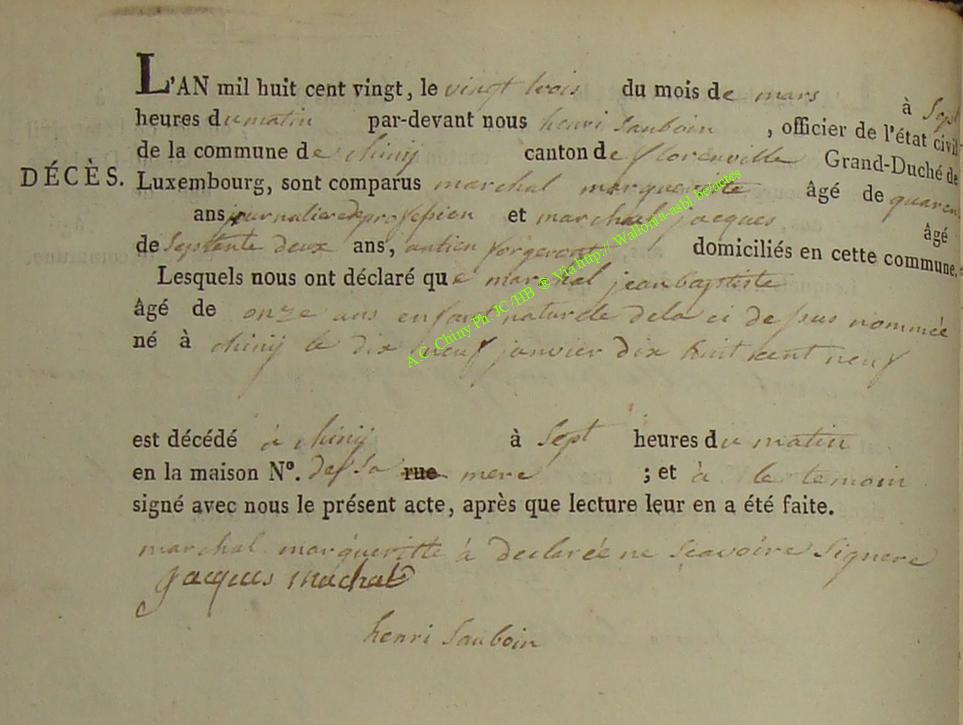 L'AN mil huit cent vingt, le vingt trois du mois de mars à Sept
heures du matin par-devant nous henri Sauboin , officier de l'état civil
de la commune de chinij canton de florenville Grand-Duché de
DÉCÈS. Luxembourg, sont comparus marchal marguerite âgé de quarent
ans journaliere de profession et marchal jacques âgé
de Septente deux ans, antien forgeront domiciliés en cette commune.
Lesquels nous ont déclaré que marchal jean baptiste
âgé de onze ans enfant naturele dela ci dessus nommée
né à chinij le dix neuf janvier dix huit cent neuf
est décédé à chinij à Sept heures du matin
en la maison N°. de Sa rue mere ; et à le temoin
signé avec nous le présent acte, après que lecture leur en a été faite.
marchal margueritte à declarée ne Scavoire Signere
jacques marchal
henri Sauboin
A.C. Chiny Ph JC /HB ® Via hup// Wallonia-asbl be/actes